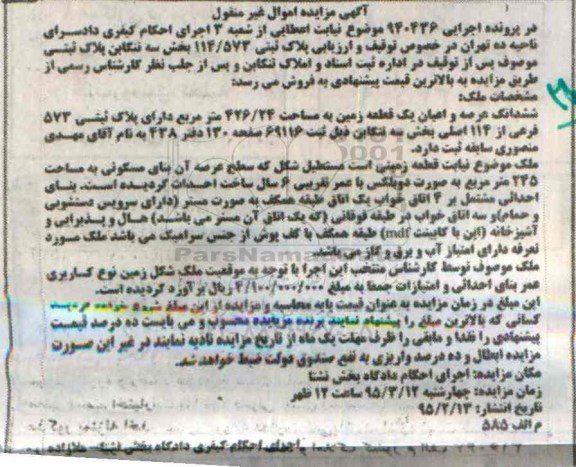 آگهی مزایده اموال غیر منقول
در پرونده اجرایی ۹۴۰۴۳۶ موضوع نیابت اعطایی از شعبه ۳ اجرای احکام کیفری دادسرای
ناحیه ده تهران در خصوص توقیف و ارزیابی پلاک ثبتی ۱۱۴/۵۷۳ بخش سه تنکابن پلاک ثبتی
موصوف پس از توقیف در اداره ثبت اسناد و املاک تنکابن و پس از جلب نظر کارشناس رسمی از
طریق مزایده به بالاترین قیمت پیشنهادی به فروش می رسد:
مشخصات ملک:
ششدانگ عرصه و اعیان یک قطعه زمین به مساحت ۴۲۶/۲۴ متر مربع دارای پلاک ثبتی ۵۷۳
فرعی از ۱۱۴ اصلی بخش سه تنکابن ذیل ثبت ۶۹۱۱۶ صفحه ۱۳۰ دفتر ۴۳۸ به نام آقای مهدی
منصوری سابقه ثبت دارد.
ملک موضوع نیابت قطعه زمینی است مستطیل شکل که سطح عرصه آن بنای مسکونی به مساحت
۲۴۵ متر مربع به صورت دوبلکس با عمر تقریبی ۶ سال ساخت احداث گردیده است. بنای
احداثی مشتمل بر ۴ اتاق خواب یک اتاق طبقه همکف به صورت مستر (دارای سرویس دستشویی
و حمام) و سه اتاق خواب در طبقه فوقانی (که یک اتاق آن مستر می باشد) هال و پذیرایی و
آشپزخانه (اپن با کابینت mdf) طبقه همکف با کف پوش از جنس سرامیک می باشد ملک مسورد
تعرفه دارای امتیاز آب و برق و گاز می باشد.
ملک موصوف توسط کارشناس منتخب این اجرا با توجه به موقعیت ملک شکل زمین نوع کاربری
عمر بنای احداثی و امتیازات جمعا به مبلغ ۴/۱۰۰/۰۰۰/۰۰۰ ریال برآورد گردیده است.
این مبلغ در زمان مزایده به عنوان قیمت پایه محاسبه و مزایده از این مبلغ شروع خواهد گردید
کسانی که بالاترین مبلغ را پیشنهاد نمایند برنده مزیایده محسوب و می بایست ده درصد قیمت
پیشنهادی را نقدا و مابقی را ظرف مهلت یک ماه از تاریخ مزایده تادیه نمایند در غیر این صورت
مزایده ابطال و ده درصد واریزی به نفع صندوق دولت ضبط خواهد شد.
مکان مزایده: اجرای احکام دادگاه بخش نشتا
زمان مزایده: چهارشنبه ۹۵/۳/۱۲ ساعت ۱۲ ظهر
تاریخ انتشار: ۹۵/۲/۱۳
م الف ۵۸۵
اجرای احکام کیفری دادگاه بخش